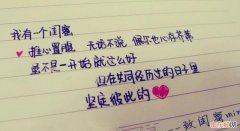 我有一个闺蜜
推心置腹 无话不说 偶尔也心存芥蒂
虽不是一开始就这么好
但在共同经历过的日子里
坚定彼此的
致闺蜜